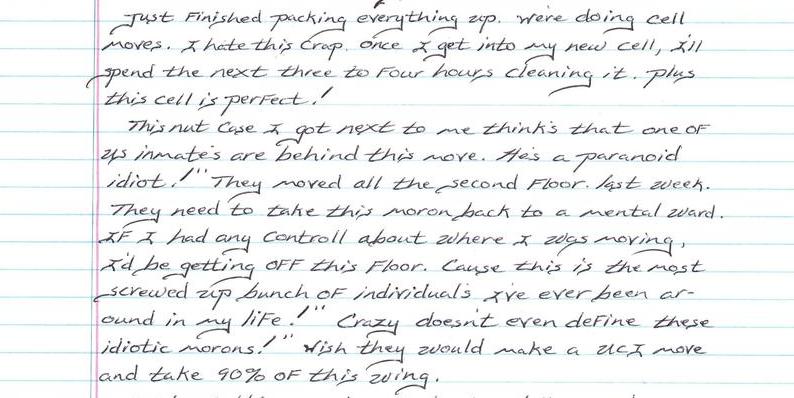 Just Finished packing everything up. We're doing cell
moves. I hate this Crap. Once I get into my new cell, I'll
spend the next three to Four hours cleaning it. Plus
this cell is perfect!
This nut Case I got next to me think's that one of
us inmate's are behind this move. He's a paranoid
idiot!" They moved all the second Floor. last week.
They need to take this moron back to a mental ward.
IF I had any Controll about where I was moving,
I'd be getting OFF this Floor. Cause this is the most
screwed up bunch OF individual's I've ever been ar-
ound in my liFe!" Crazy doesn't even deFine these
idiotic morons!" Wish they would make a UCI move
and take 90% OF this wing.